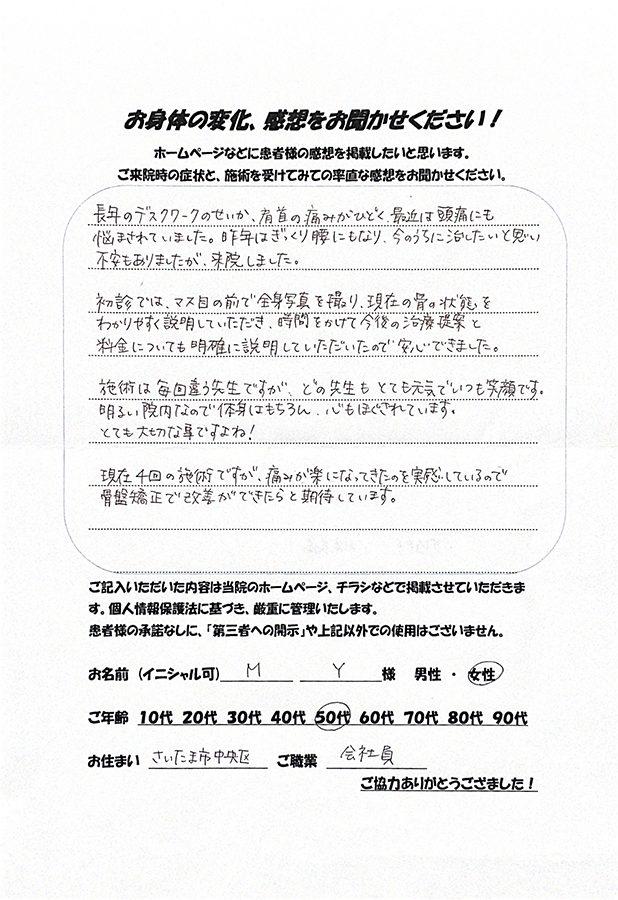 お身体の変化、感想をお聞かせください！
ホームページなどに患者様の感想を掲載したいと思います。
ご来院時の症状と、施術を受けてみての率直な感想をお聞かせください。
長年のデスクワークのせいか、肩首の痛みがひどく、最近は頭痛にも
悩まされていました。昨年はぎっくり腰にもなり、今のうちに治したいと思い
不安もありましたが、来院しました。
初診では、マス目の前で全身写真を撮り、現在の骨の状態を
わかりやすく説明していただき、時間をかけて今後の治療提案と
料金についても明確に説明していただいたので安心できました。
施術は毎回違う先生ですが、どの先生もとても元気でいつも笑顔です。
明るい院内なので体身はもちろん、心もほぐされています。
とても大切な事ですよね！
現在4回の施術ですが、痛みが楽になってきたのを実感しているので
骨盤矯正で改善ができたらと期待しています。
ご記入いただいた内容は当院のホームページ、チラシなどで掲載させていただきま
す。個人情報保護法に基づき、厳重に管理いたします。
患者様の承諾なしに、「第三者への開示」や上記以外での使用はございません。
お名前（イニシャル可） M Y 様 男性 ・ 女性
ご年齢 10代 20代 30代 40代 50代 60代 70代 80代 90代
お住まい さいたま市中央区 ご職業 会社員
ご協力ありがとうござました！